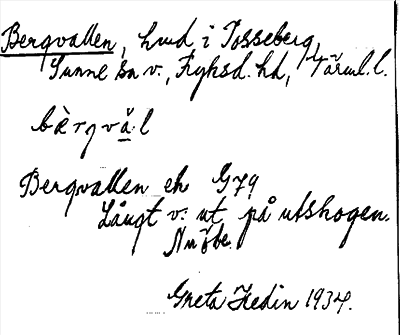 Bergvallen, hmd, i Tosseberg,
Sunne sn v., Fryksd. hd, Värml. l.
bèrgvål
Bergvallen ek G79
Långt v. ut på utskogen.
Greta Hedin 1934.